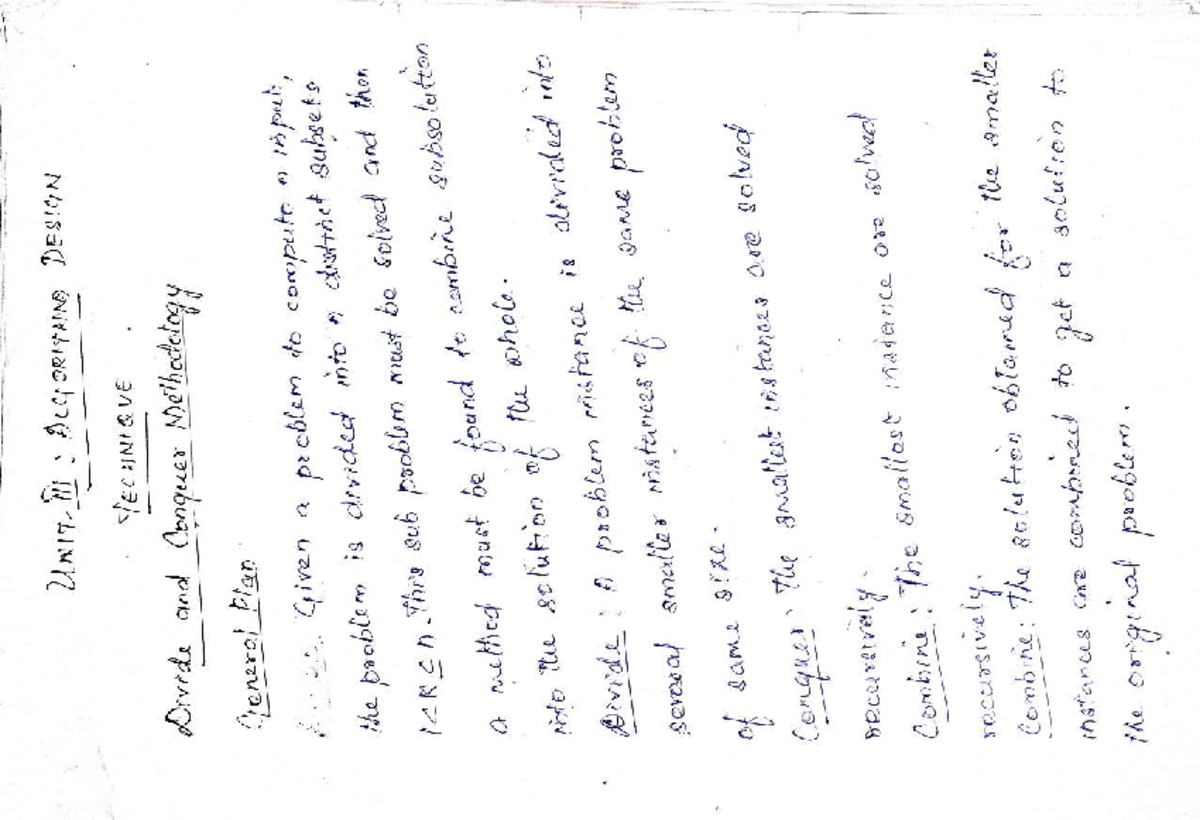 UNIT-III : ALGORITHMS DESIGN
TECHNIQUE
Divide and Conquer Methodology
General Plan
Given a problem to compute n input,
the problem is divided into n distinct subsets
1<K<n. This sub problem must be solved and then
a method must be found to combine subsolution
into the solution of the whole.
Divide : A problem instance is divided into
several smaller instances of the same problem
of same size.
Conquer : The smallest instances are solved
recursively.
Combine : The smallest instance are solved
recursively.
Combine : The solution obtained for the smaller
instances are combined to get a solution to
the original problem.